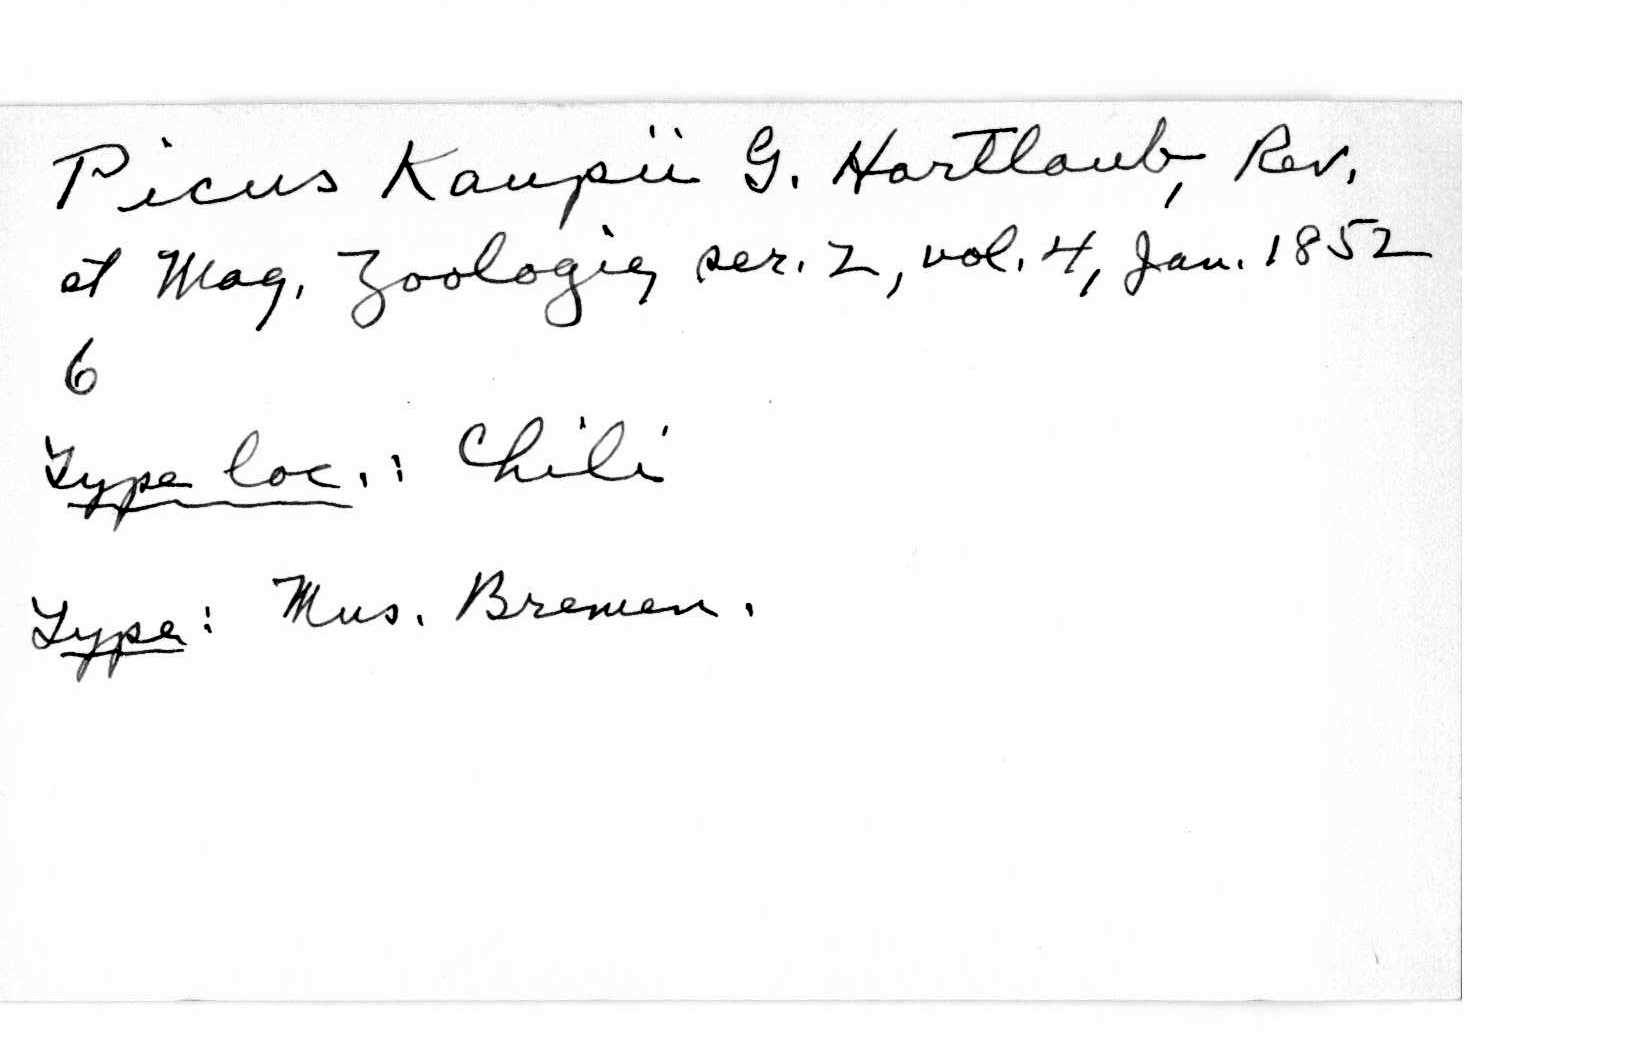 Picus Kaupii G. Hartlaub, Rev.
et Mag. Zoologie, ser. 2, vol. 4, Jan. 1852
6
Type loc.: Chili
Type: Mus. Bremen.